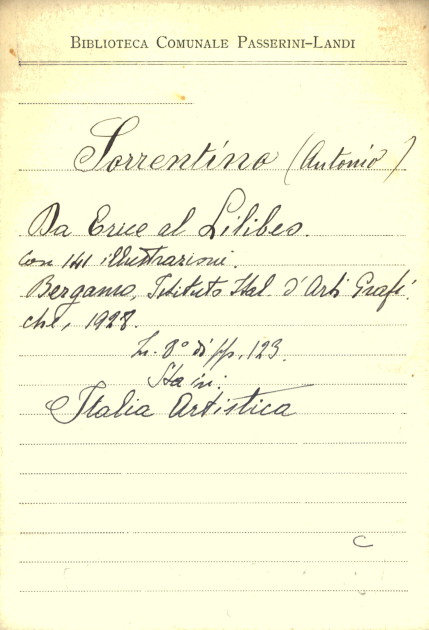 BIBLIOTECA COMUNALE PASSERINI-LANDI
Sorrentino (Antonio)
Da Erice al Lilibeo.
con 141 illustrazioni.
Bergamo, Istituto Ital. d'Arti Grafi
che, 1928.
In 8° di pp. 123.
Sta in:
Italia Artistica
C